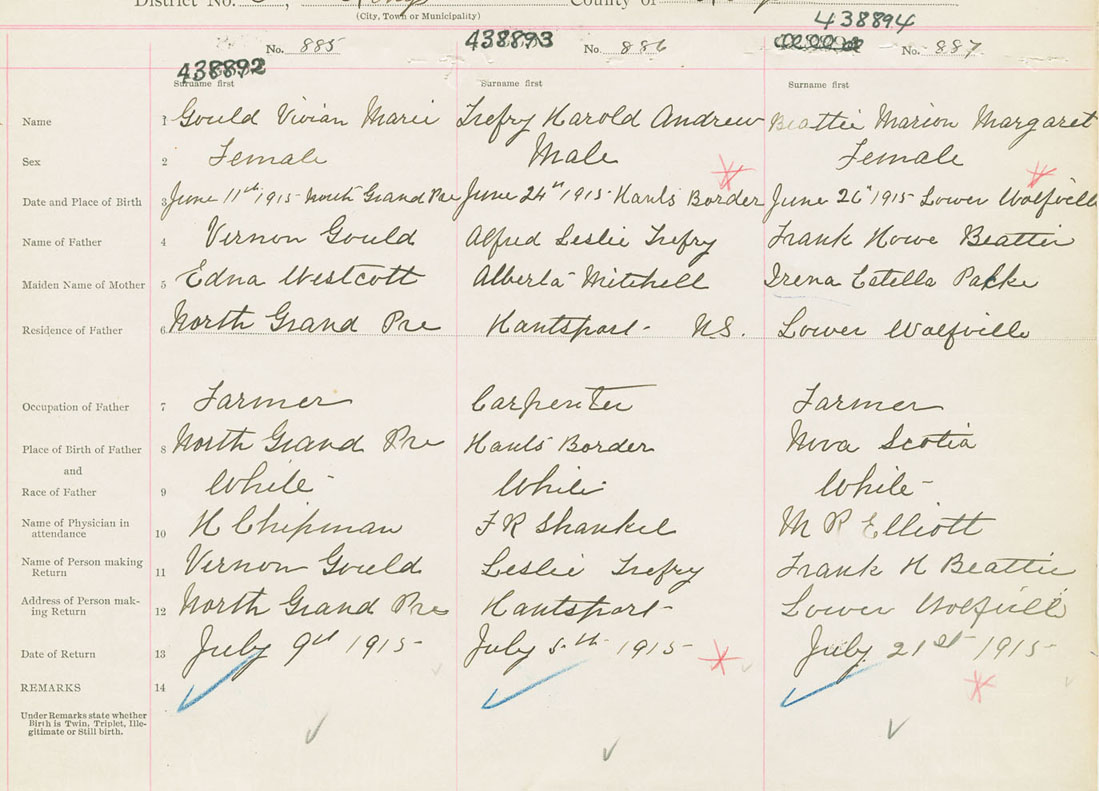 District No. County of
(City, Town or Municipality)
438894
No. 885 438893 No. 886 No. 887
438892
Surname first Surname first Surname first
Name 1 Gould Vivian Marie Trefry Harold Andrew Beattie Marion Margaret
Sex 2 Female Male Female
Date and Place of Birth 3 June 11th 1915 - North Grand Pre June 24th 1915 - Hants Border June 26" 1915 - Lower Wolfville
Name of Father 4 Vernon Gould Alfred Leslie Trefry Frank Howe Beattie
Maiden Name of Mother 5 Edna Westcott Alberta Mitchell Irena Estella
Residence of Father 6 North Grand Pre Hantsport - N.S. Lower Wolfville
Occupation of Father 7 Farmer Carpenter Farmer
Place of Birth of Father 8 North Grand Pre Hants Border Nova Scotia
and
Race of Father 9 White White White
Name of Physician in
attendance 10 H Chipman F R Shankel M R Elliott
Name of Person making
Return 11 Vernon Gould Leslie Trefry Frank H Beattie
Address of Person mak-
ing Return 12 North Grand Pre Hantsport - Lower Wolfville
Date of Return 13 July 9th 1915 - July 5th 1915 - July 21st 1915 -
REMARKS 14
Under Remarks state whether
Birth is Twin, Triplet, Ille-
gitimate or Still birth.